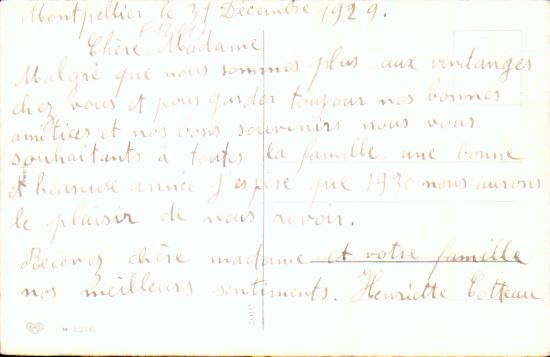 Montpellier le 31 Décembre 1929.
Chère Madame
Malgré que nous sommes plus aux vendanges
chez vous et pour garder toujour nos bonnes
amitiées et nos bons souvenirs nous vous
souhaitants à toutes la famille une bonne
et heureuse année J'espère que 1930 nous aurons
le plaisir de nous revoir.
Recevez chère madame et votre famille
nos meilleurs sentiments. Henriette Cotteau